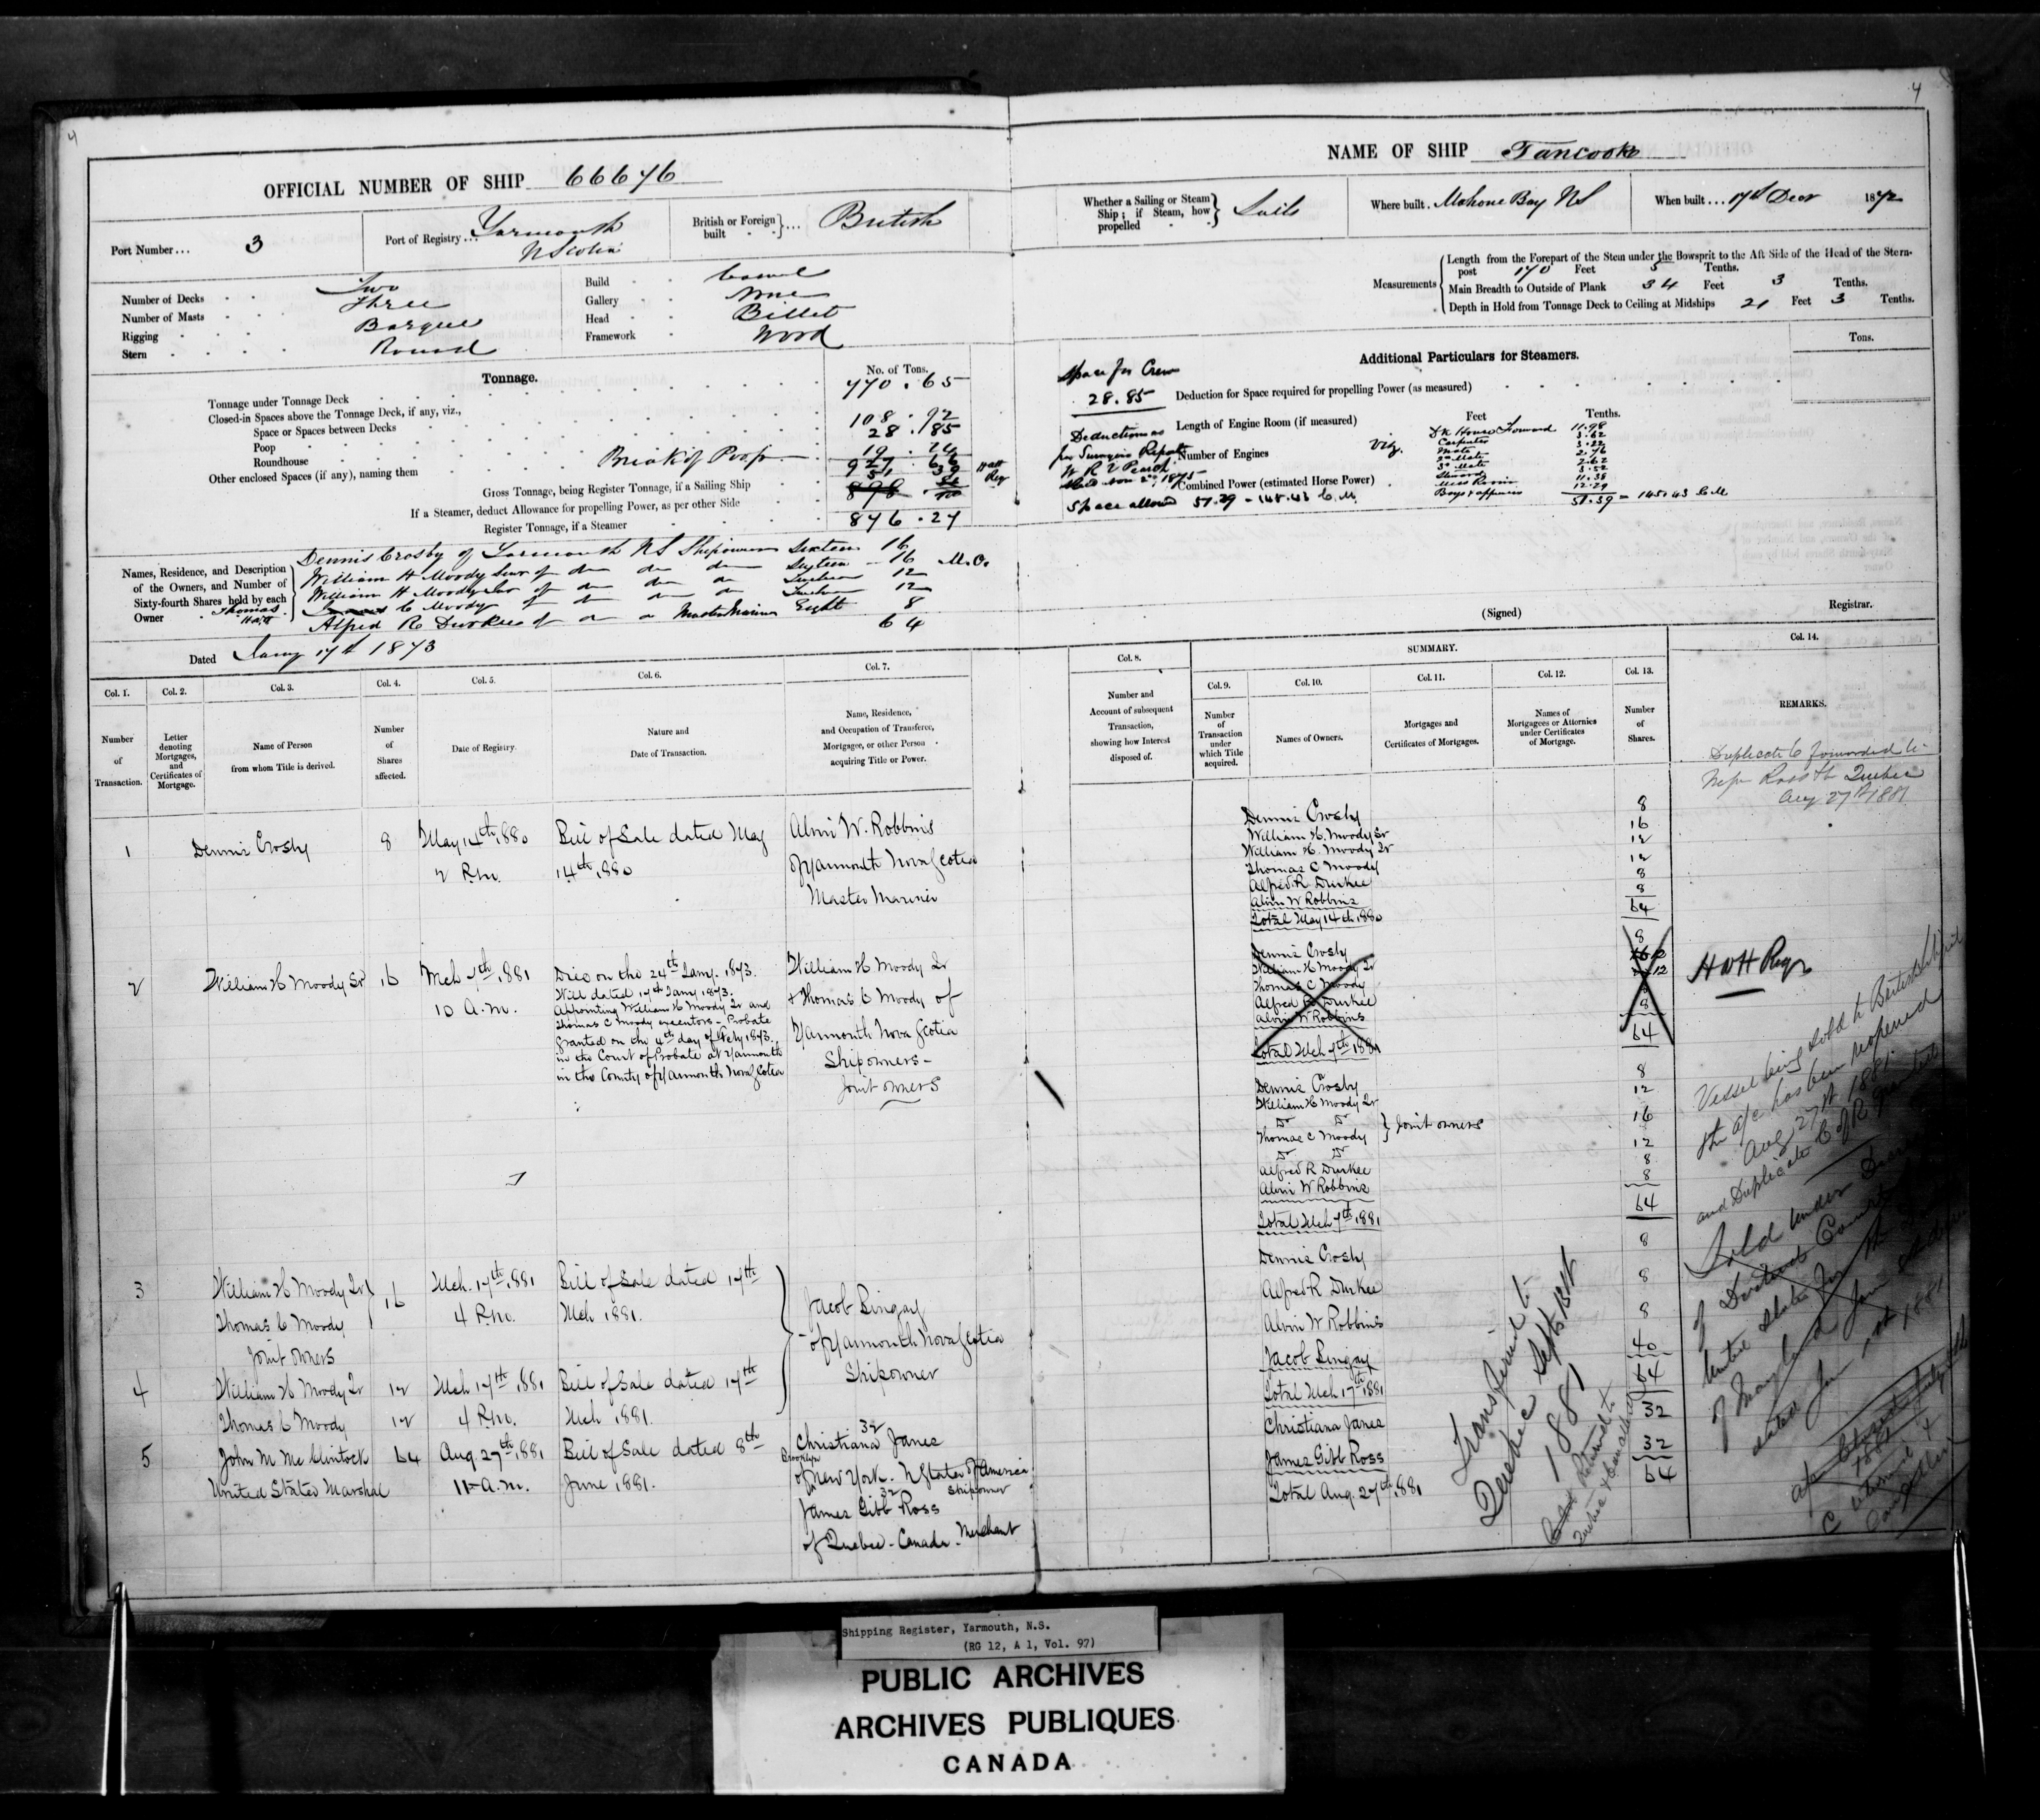 4
OFFICIAL NUMBER OF SHIP 66676
Port Number... 3
Port of Registry... Yarmouth
N Scotia
British or Foreign built } ... British
Number of Decks Two
Number of Masts Three
Rigging Barque
Stern Round
Build Carvel
Gallery None
Head Billet
Framework Wood
Tonnage.
No. of Tons.
Tonnage under Tonnage Deck 770.65
Closed-in Spaces above the Tonnage Deck, if any, viz.,
Space or Spaces between Decks 108.92
Poop 28.85
Roundhouse
Other enclosed Spaces (if any), naming them Break of Poop 19.24
927.66
51.39
Gross Tonnage, being Register Tonnage, if a Sailing Ship
If a Steamer, deduct Allowance for propelling Power, as per other Side
Register Tonnage, if a Steamer
876.27
Names, Residence, and Description of the Owners, and Number of Sixty-fourth Shares held by each Owner
Dennis Crosby of Yarmouth NS Shipowner Sixteen 16
William H Moody Senr of do do do Sixteen 16
William H Moody Jnr of do do do Twelve 12
Thomas C Moody of do do do Twelve 12
Alfred R Durkee of do do Master Mariner Eight 8
64
Dated Jany 17th 1873
Col. 1.
Number of Transaction.
Col. 2.
Letter denoting Mortgages, and Certificates of Mortgage.
Col. 3.
Name of Person from whom Title is derived.
Col. 4.
Number of Shares affected.
Col. 5.
Date of Registry.
Col. 6.
Nature and Date of Transaction.
Col. 7.
Name, Residence, and Occupation of Transferee, Mortgagee, or other Person acquiring Title or Power.
1
Dennis Crosby
8
May 14th 1880
2 P.m.
Bill of Sale dated May
14th 1880
Alvin W. Robbins
of Yarmouth Nova Scotia
Master Mariner
2
William H Moody Sr
16
Mch 7th 1881
10 A.m.
Died on the 24th Jany. 1873.
Will dated 17th Jany 1873.
Appointing William H Moody Jr and
Thomas C Moody executors - Probate
granted on the 4th day of Feby 1873.
in the Court of Probate at Yarmouth
in the County of Yarmouth Nova Scotia
William H Moody Jr
& Thomas C Moody of
Yarmouth Nova Scotia
Shipowners -
Joint owners
3
William H Moody Jr
Thomas C Moody
Joint owners
16
Mch. 17th 1881
4 P.m.
Bill of Sale dated 17th
Mch 1881.
Jacob Bingay
of Yarmouth Nova Scotia
Shipowner
4
William H Moody Jr
Thomas C Moody
12
12
Mch 17th 1881
4 P.m.
Bill of Sale dated 17th
Mch 1881.
5
John M McClintock
United States Marshal
64
Aug. 27th 1881
11 A.m.
Bill of Sale dated 8th
June 1881.
32
Christiana Janes
Brooklyn
of New York. U States of America
Shipowner
32
James Gibb Ross
of Quebec - Canada - Merchant
4
NAME OF SHIP Tancook
Whether a Sailing or Steam Ship; if Steam, how propelled } Sails
Where built. Mahone Bay NS
When built... 17th Decr 1872
Measurements
Length from the Forepart of the Stem under the Bowsprit to the Aft Side of the Head of the Stern-
post 170 Feet 5 Tenths.
Main Breadth to Outside of Plank 34 Feet 3 Tenths.
Depth in Hold from Tonnage Deck to Ceiling at Midships 21 Feet 3 Tenths.
Additional Particulars for Steamers.
Tons.
Space for Crew
28.85
Deduction for Space required for propelling Power (as measured)
Length of Engine Room (if measured)
Feet
Tenths.
Number of Engines
Combined Power (estimated Horse Power)
Deduction as
per Surveyors Report
Space allowed 51.39 - 145.43 C.M.
Viz.
Dk House Forward 11.98
Carpenter 3.62
Mate
2d Mate
Steward
Mess Room
51.39 = 145.43 C.M
(Signed)
Registrar.
Col. 8.
Number and Account of subsequent Transaction, showing how Interest disposed of.
SUMMARY.
Col. 9.
Number of Transaction under which Title acquired.
Col. 10.
Names of Owners.
Col. 11.
Mortgages and Certificates of Mortgages.
Col. 12.
Names of Mortgagees or Attornies under Certificates of Mortgage.
Col. 13.
Number of Shares.
Col. 14.
REMARKS.
Dennis Crosby 8
William H. Moody Sr 16
William H. Moody Jr 12
Thomas C Moody 12
Alfred R Durkee 8
Alvin W Robbins 8
Total May 14th 1880 64
Dennis Crosby 8
William H Moody Jr
Thomas C Moody
Alfred R Durkee 8
Alvin W Robbins 8
Total Mch 7th 1881 64
Dennis Crosby 8
William H Moody Jr 12
Do Do
Thomas C Moody } Joint owners 16
Do Do 12
Alfred R Durkee 8
Alvin W Robbins 8
Total Mch 7th 1881 64
Dennis Crosby 8
Alfred R Durkee 8
Alvin W Robbins 8
Jacob Bingay 40
Total Mch 17th 1881 64
Christiana Janes 32
James Gibb Ross 32
Total Aug. 27th 1881 64
Transferred to
Quebec Septr
1881
Duplicate C forwarded to
Ross Quebec
Aug 27th 1881
H W H Regr
Vessel being sold to British
the a/c has been reopened
Aug 27th 1881
and Duplicate C of R granted
Sold under
of District Court
United States for the
of Maryland
dated Jan 1881
Shipping Register, Yarmouth, N.S.
(RG 12, A 1, Vol. 97)
PUBLIC ARCHIVES
ARCHIVES PUBLIQUES
CANADA